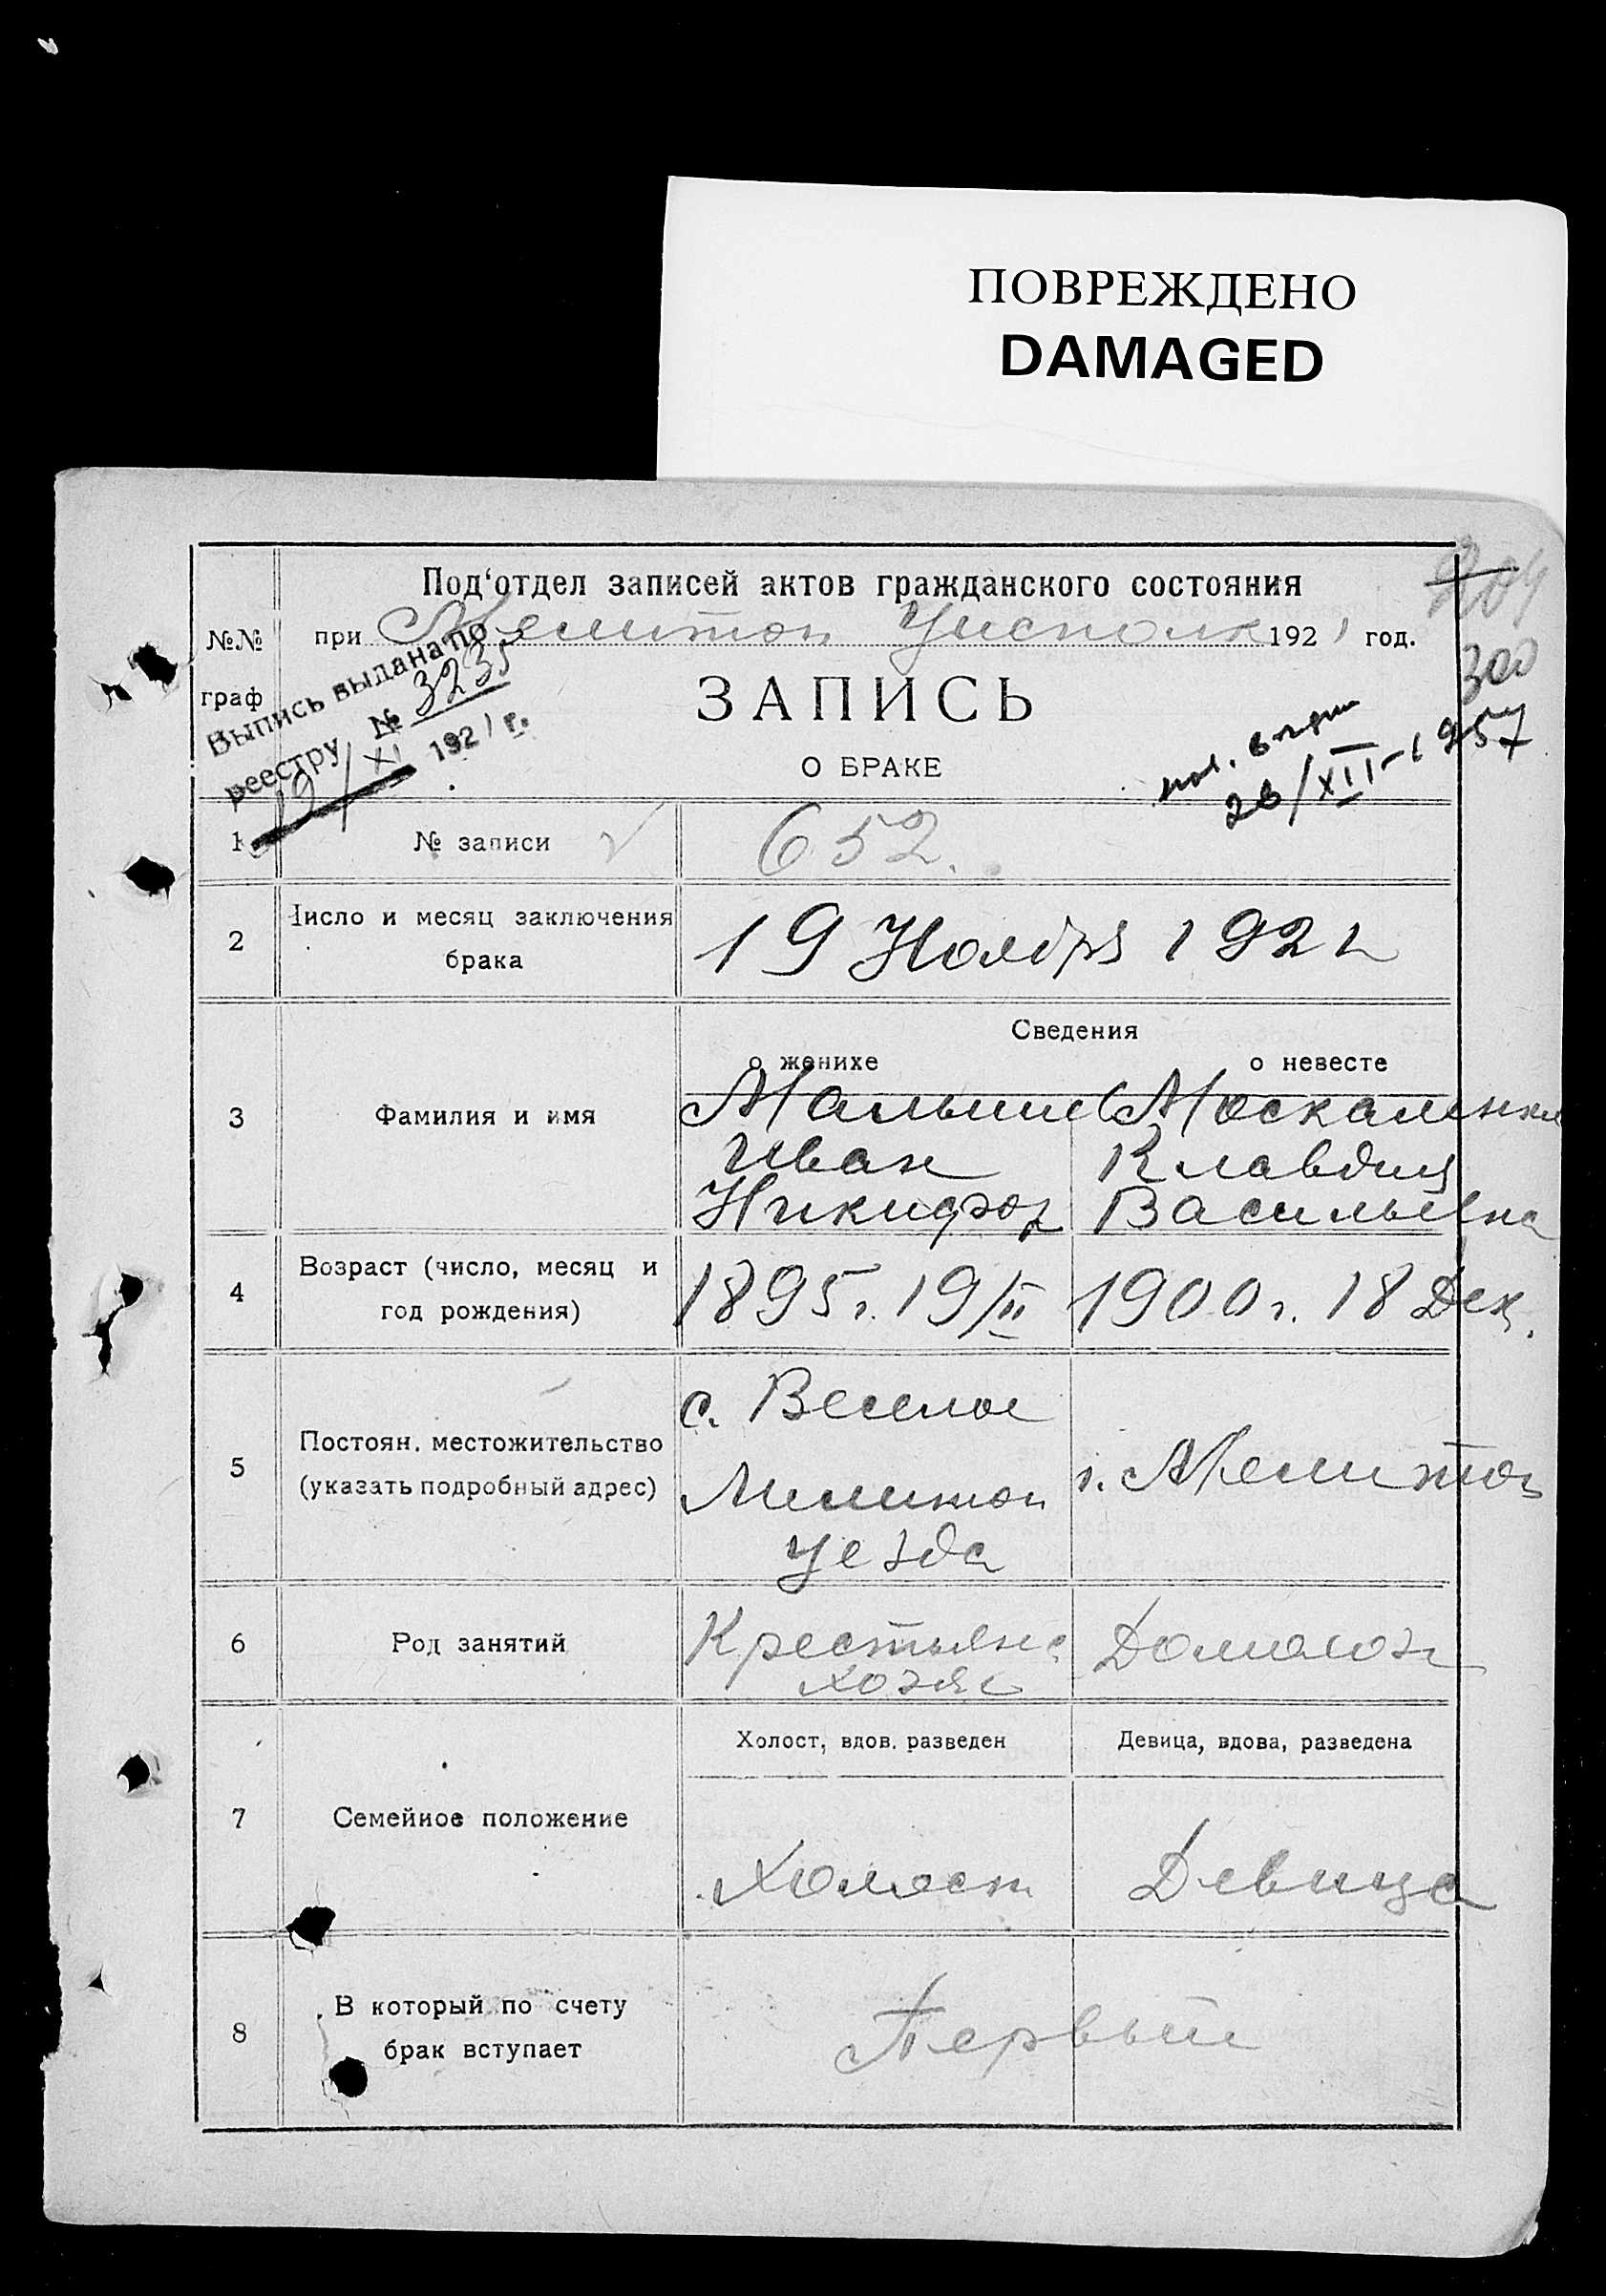 ПОВРЕЖДЕНО
DAMAGED
Под'отдел записей актов гражданского состояния
при Мелитоп Уисполк 1921 год.
№№
граф
Выпись выдана по
реестру № 3235
19/XI 1921 г.
ЗАПИСЬ
О БРАКЕ
204
300
26/XII-1957
1 № записи 652.
2 Число и месяц заключения
брака
19 Ноября 1921
Сведения
о женихе о невесте
3 Фамилия и имя
Малыше Москаленко
Иван Клавдия
Никифор Васильевна
4 Возраст (число, месяц и
год рождения)
1895 г. 19/II 1900 г. 18 Дек.
5 Постоян. местожительство
(указать подробный адрес)
с. Веселое
Мелитоп г. Мелитоп
уезда
6 Род занятий
Крестьянс Домохоз
хозяс
Холост, вдов. разведен Девица, вдова, разведена
7 Семейное положение
Холост Девица
8 В который по счету
брак вступает
Первый